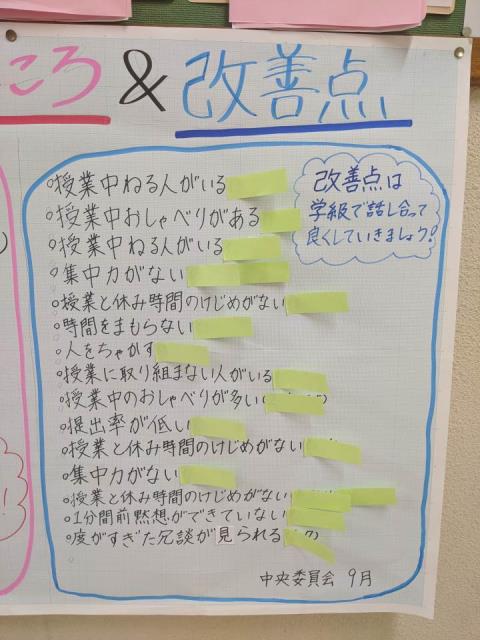 ころ & 改善点
改善点は
学級で話し合って
良くしていきましょう!
○授業中ねる人がいる
○授業中おしゃべりがある
○授業中ねる人がいる
○集中力がない
○授業と休み時間のけじめがない
○時間をまもらない
○人をちゃかす
○授業に取り組まない人がいる
○授業中のおしゃべりが多い
○提出率が低い
○授業と休み時間のけじめがない
○集中力がない
○授業と休み時間のけじめがない
○1分間前黙想ができていない
○度がすぎた冗談が見られる
中央委員会 9月